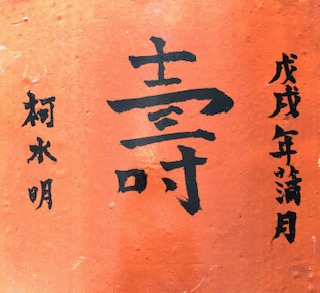 戊戌年滿月
壽
柯水明